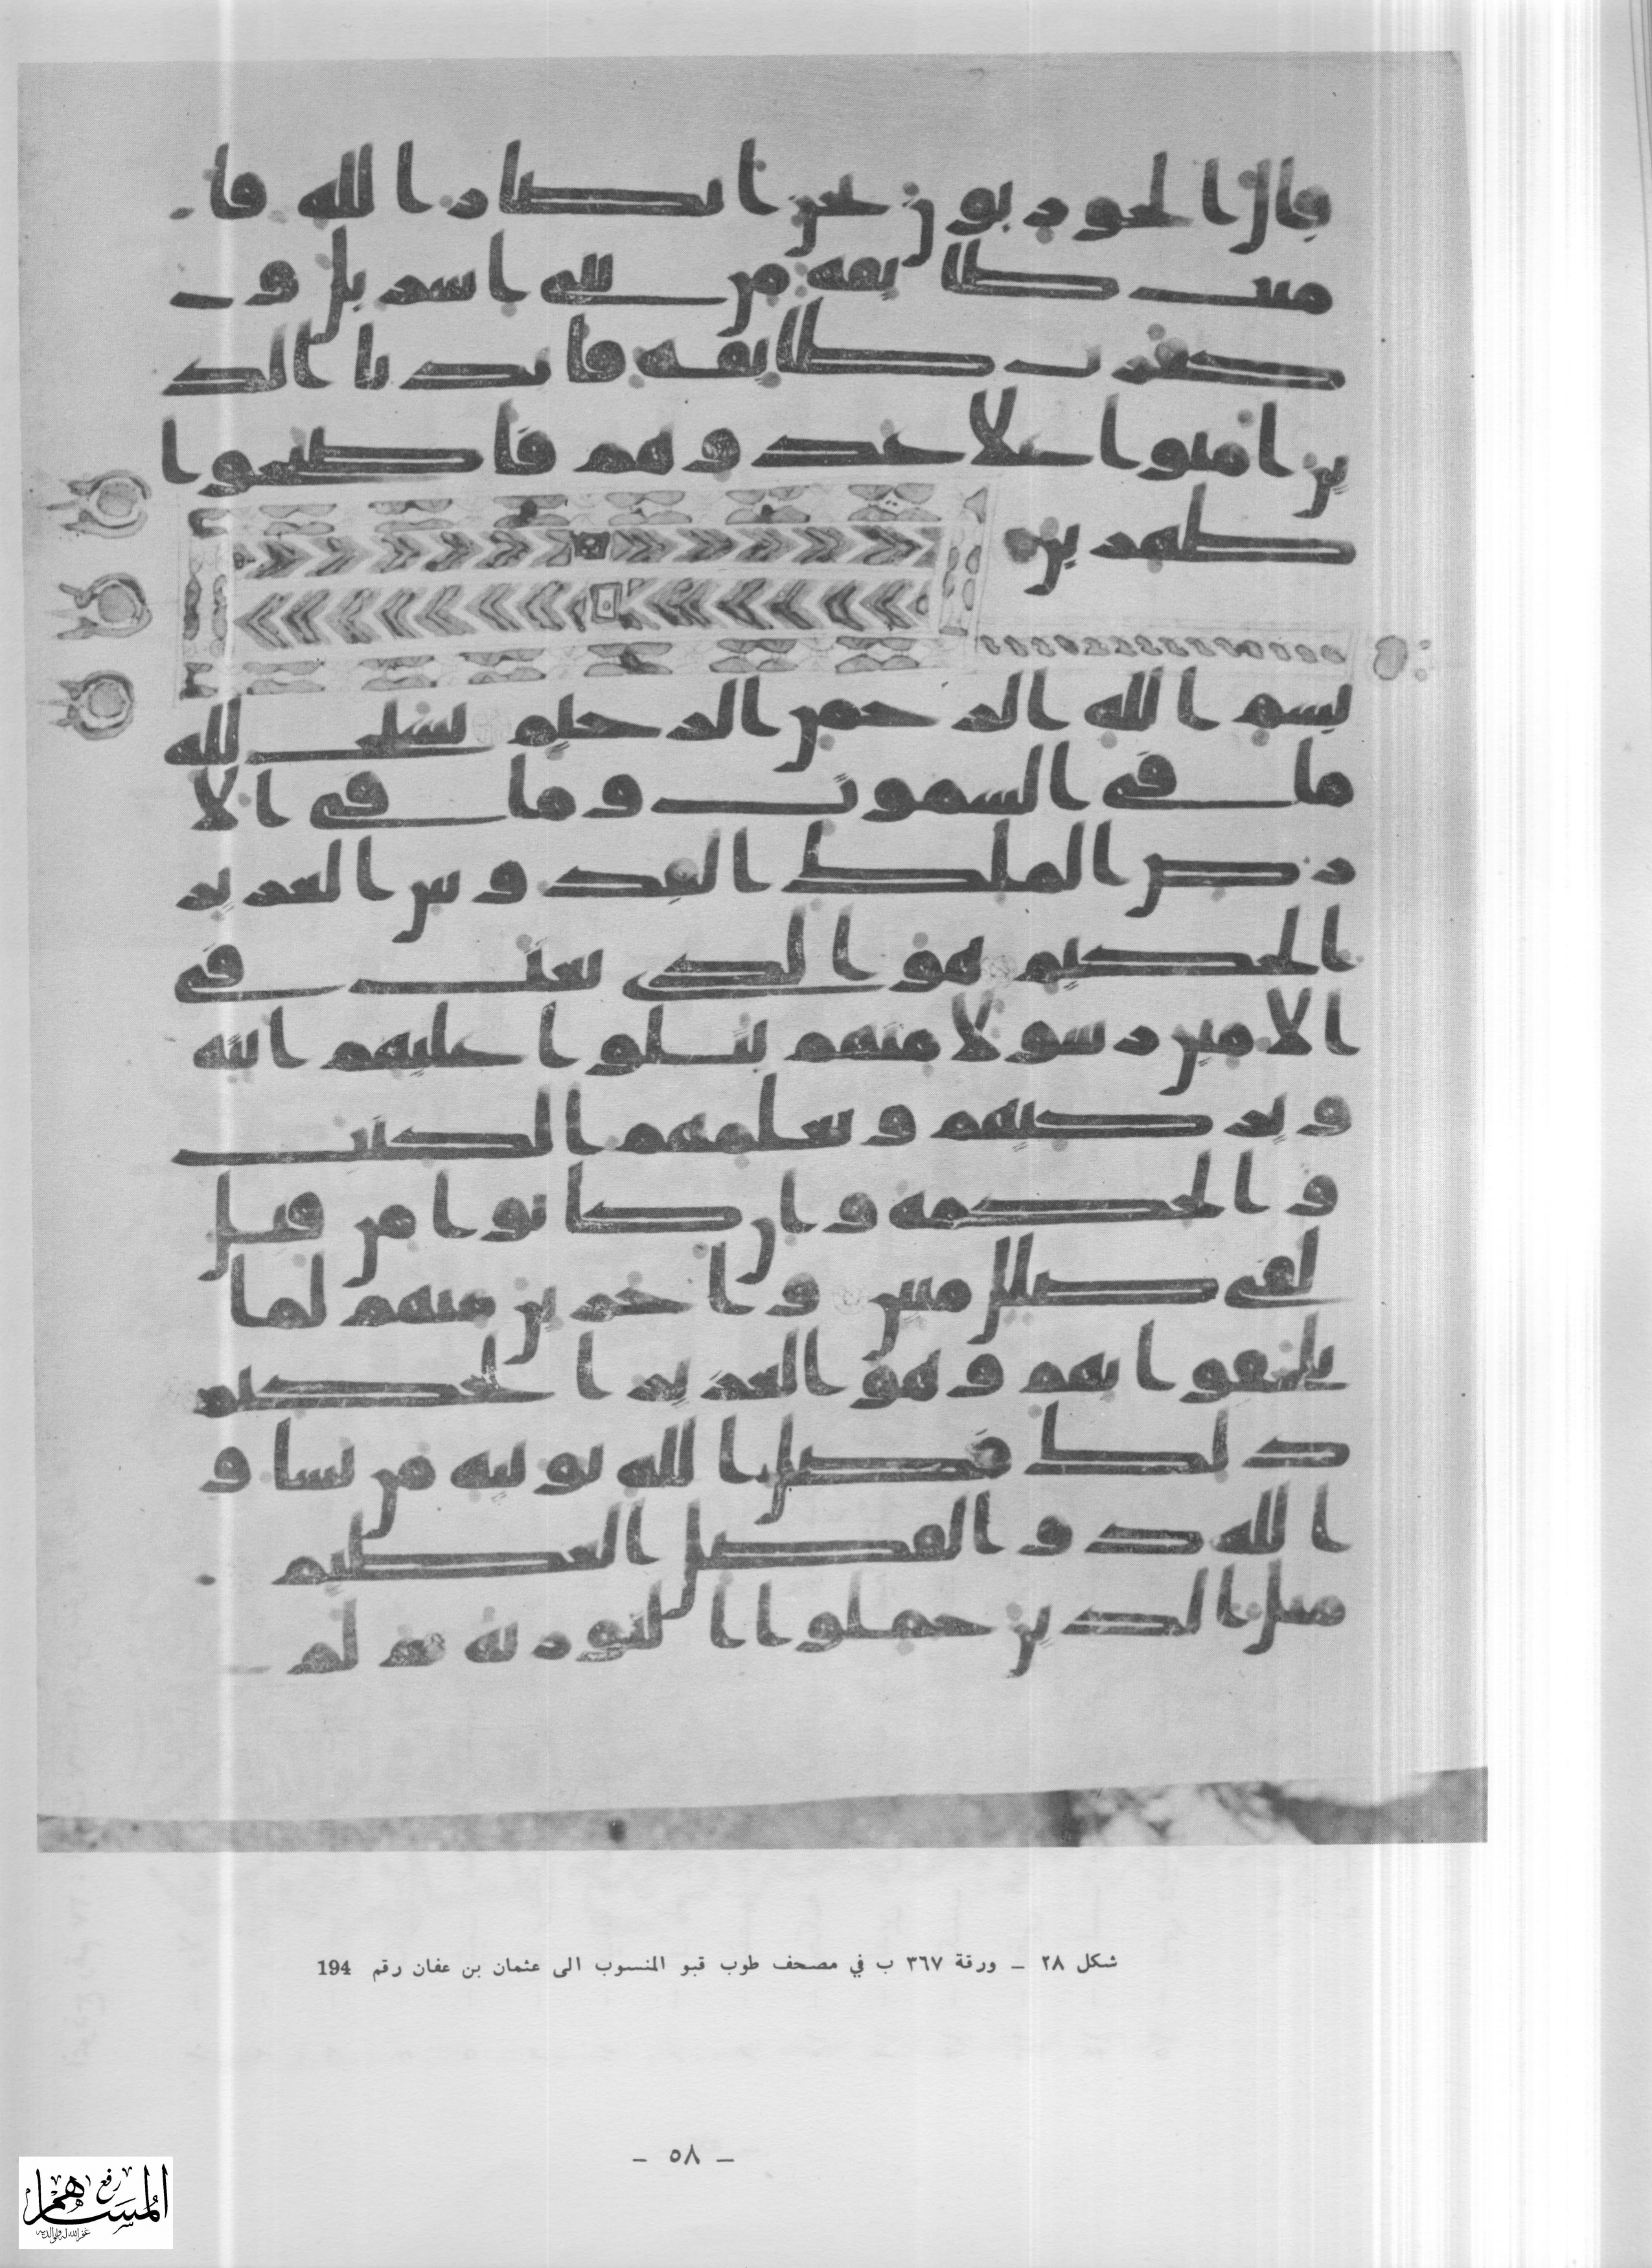 قال الحواريون نحن انصار الله فا
منت طائفة من بنى اسريل و
كفرت طائفة فايدنا الذ
ين امنوا على عدوهم فاصبحوا
ظهرين
بسم الله الرحمن الرحيم يسبح لله
ما في السموت وما في الا
رض الملك القدوس العزيز
الحكيم هو الذى بعث في
الامين رسولا منهم يتلوا عليهم ايته
ويزكيهم ويعلمهم الكتب
والحكمة وان كانوا من قبل
لفى ضلل مبين واخرين منهم لما
يلحقوا بهم وهو العزيز الحكيم
ذلك فضل الله يوتيه من يشا و
الله ذو الفضل العظيم
مثل الذين حملوا التورية ثم لم
شكل ٢٨ ـ ورقة ٣٦٧ ب في مصحف طوب قبو المنسوب الى عثمان بن عفان رقم 194
ـ ٥٨ ـ
رفع
المساهم
غفر الله له ولوالديه